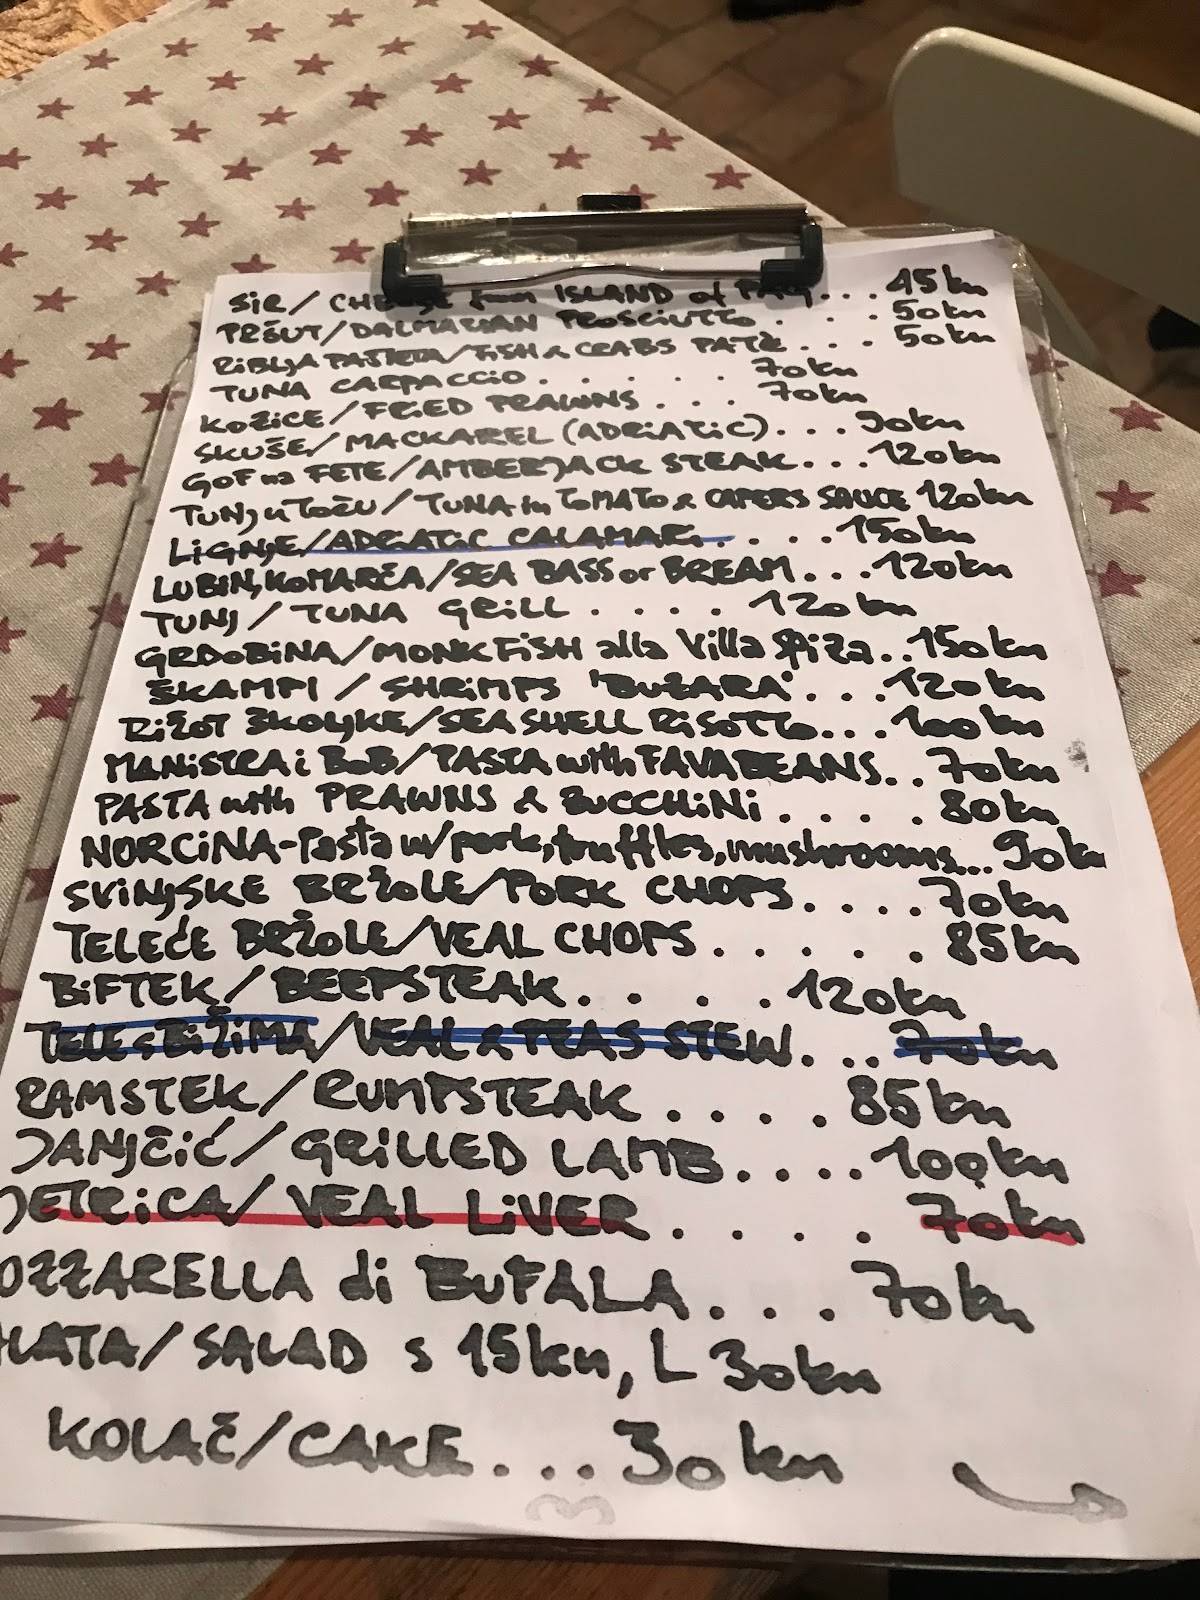 SIR/CHEESE from ISLAND of PAG...45kn
PRŠUT/DALMATIAN PROSCIUTTO....50kn
RIBLJA PAŠTETA/FISH & CRABS PATÈ...50kn
TUNA CARPACCIO......70kn
KOZICE/FRIED PRAWNS...70kn
SKUŠE/MACKAREL (ADRIATIC)...90kn
GOF na FETE/AMBERJACK STEAK...120kn
TUNJ u TOĆU/TUNA in TOMATO & CAPERS SAUCE 120kn
LIGNJE/ADRIATIC CALAMARI....150kn
LUBIN, KOMARČA/SEA BASS or BREAM...120kn
TUNJ/TUNA GRILL....120kn
GRDOBINA/MONKFISH alla Villa Spiza..150kn
ŠKAMPI/SHRIMPS 'BUZARA'...120kn
RIŽOT ŠKOLJKE/SEA SHELL RISOTTO...100kn
MANISTRA i BOB/PASTA with FAVABEANS..70kn
PASTA with PRAWNS & ZUCCHINI....80kn
NORCINA-Pasta w/pork, truffles, mushrooms...90kn
SVINJSKE BRŽOLE/PORK CHOPS....70kn
TELEĆE BRŽOLE/VEAL CHOPS.....85kn
BIFTEK/BEEFSTEAK....120kn
TELE s BIŽIMA/VEAL & PEAS STEW...70kn
RAMSTEK/RUMPSTEAK....85kn
JANJČIĆ/GRILLED LAMB....100kn
JETRICA/VEAL LIVER....70kn
OZZARELLA di BUFALA...70kn
LATA/SALAD S 15kn, L 30kn
KOLAČ/CAKE...30kn